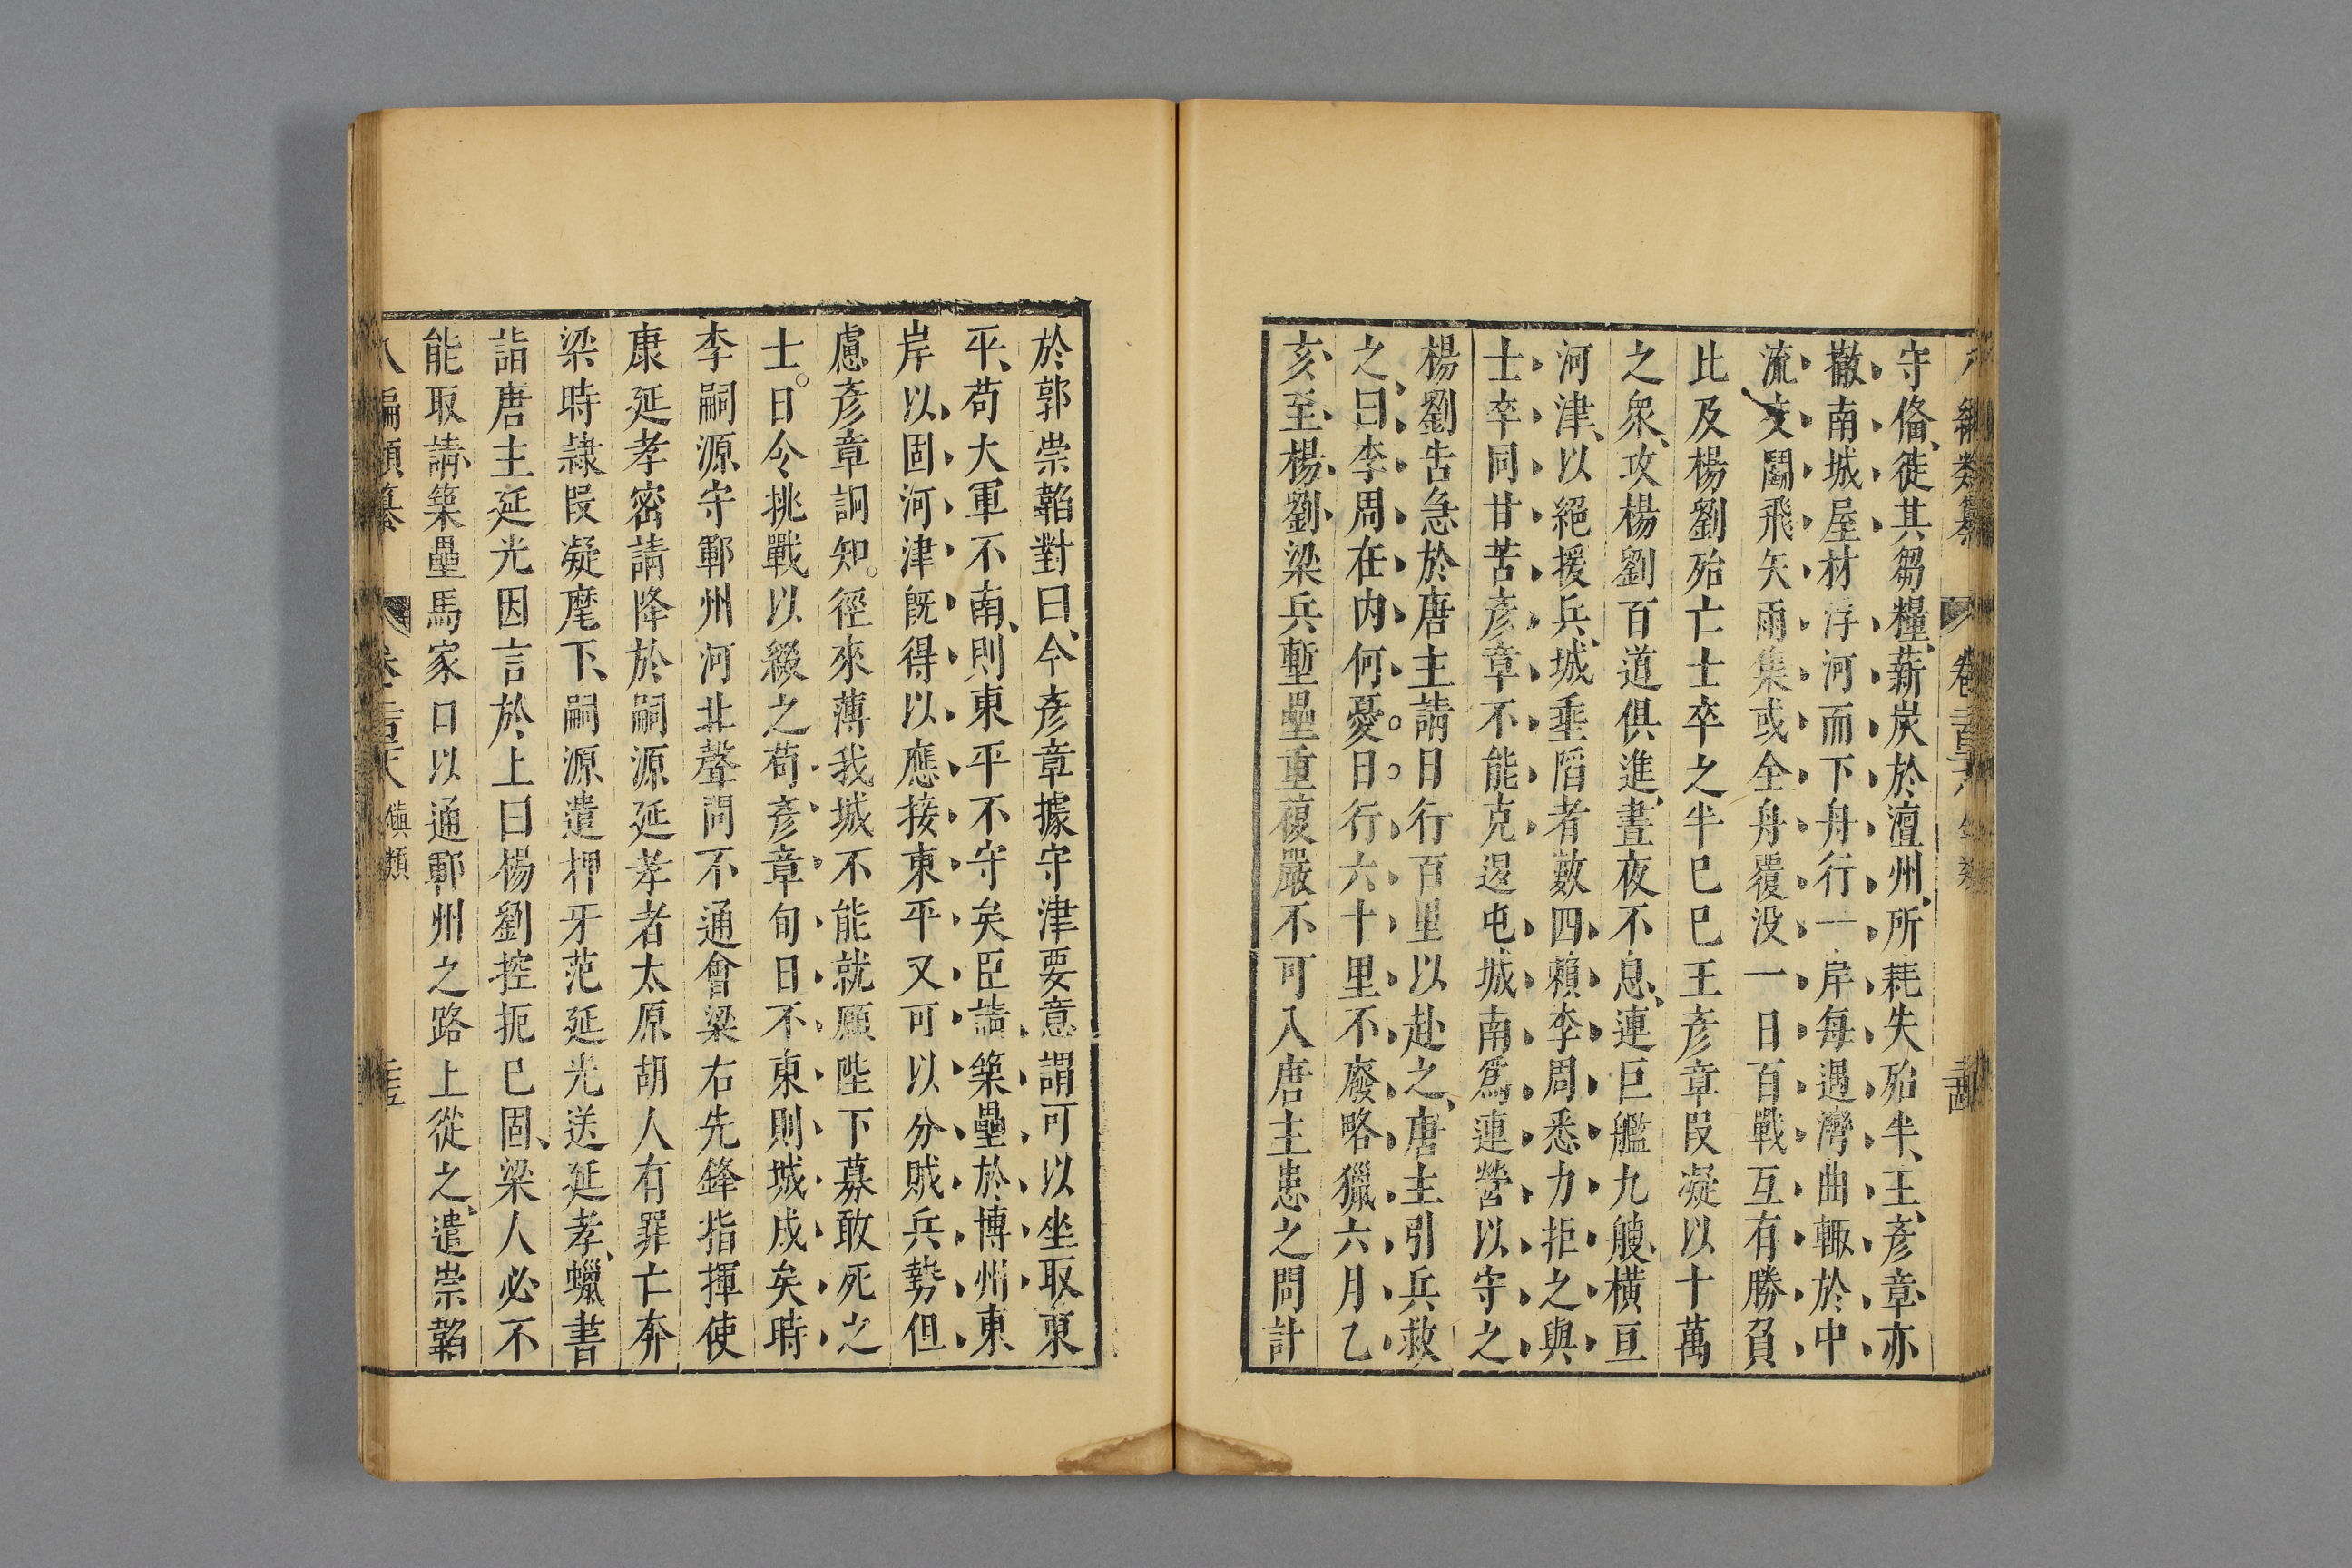 守備徙其芻糧薪炭於澶州所耗失殆半王彥章亦
撤南城屋材浮河而下舟行一岸每遇灣曲輙於中
流交鬬飛矢雨集或全舟覆没一日百戰互有勝負
比及楊劉殆亡士卒之半已巳王彥章段凝以十萬
之衆攻楊劉百道俱進晝夜不息連巨艦九艘橫亘
河津以絕援兵城垂陷者數四賴李周悉力拒之與
士卒同甘苦彥章不能克退屯城南爲連營以守之
楊劉告急於唐主請日行百里以赴之唐主引兵救
之曰李周在内何憂日行六十里不廢畋獵六月乙
亥至楊劉梁兵塹壘重複嚴不可入唐主患之問計
於郭崇韜對曰今彥章據守津要意謂可以坐取東
平苟大軍不南則東平不守矣臣請築壘於博州東
岸以固河津旣得以應接東平又可以分賊兵勢但
慮彥章詗知徑來薄我城不能就願陛下募敢死之
士日令挑戰以綴之苟彥章旬日不東則城成矣時
李嗣源守鄆州河北聲問不通會梁右先鋒指揮使
康延孝密請降於嗣源延孝者太原胡人有罪亡奔
梁時隷段凝麾下嗣源遣押牙范延光送延孝蠟書
詣唐主延光因言於上曰楊劉控扼已固梁人必不
能取請築壘馬家口以通鄆州之路上從之遣崇韜
八編類纂 卷 鎮類